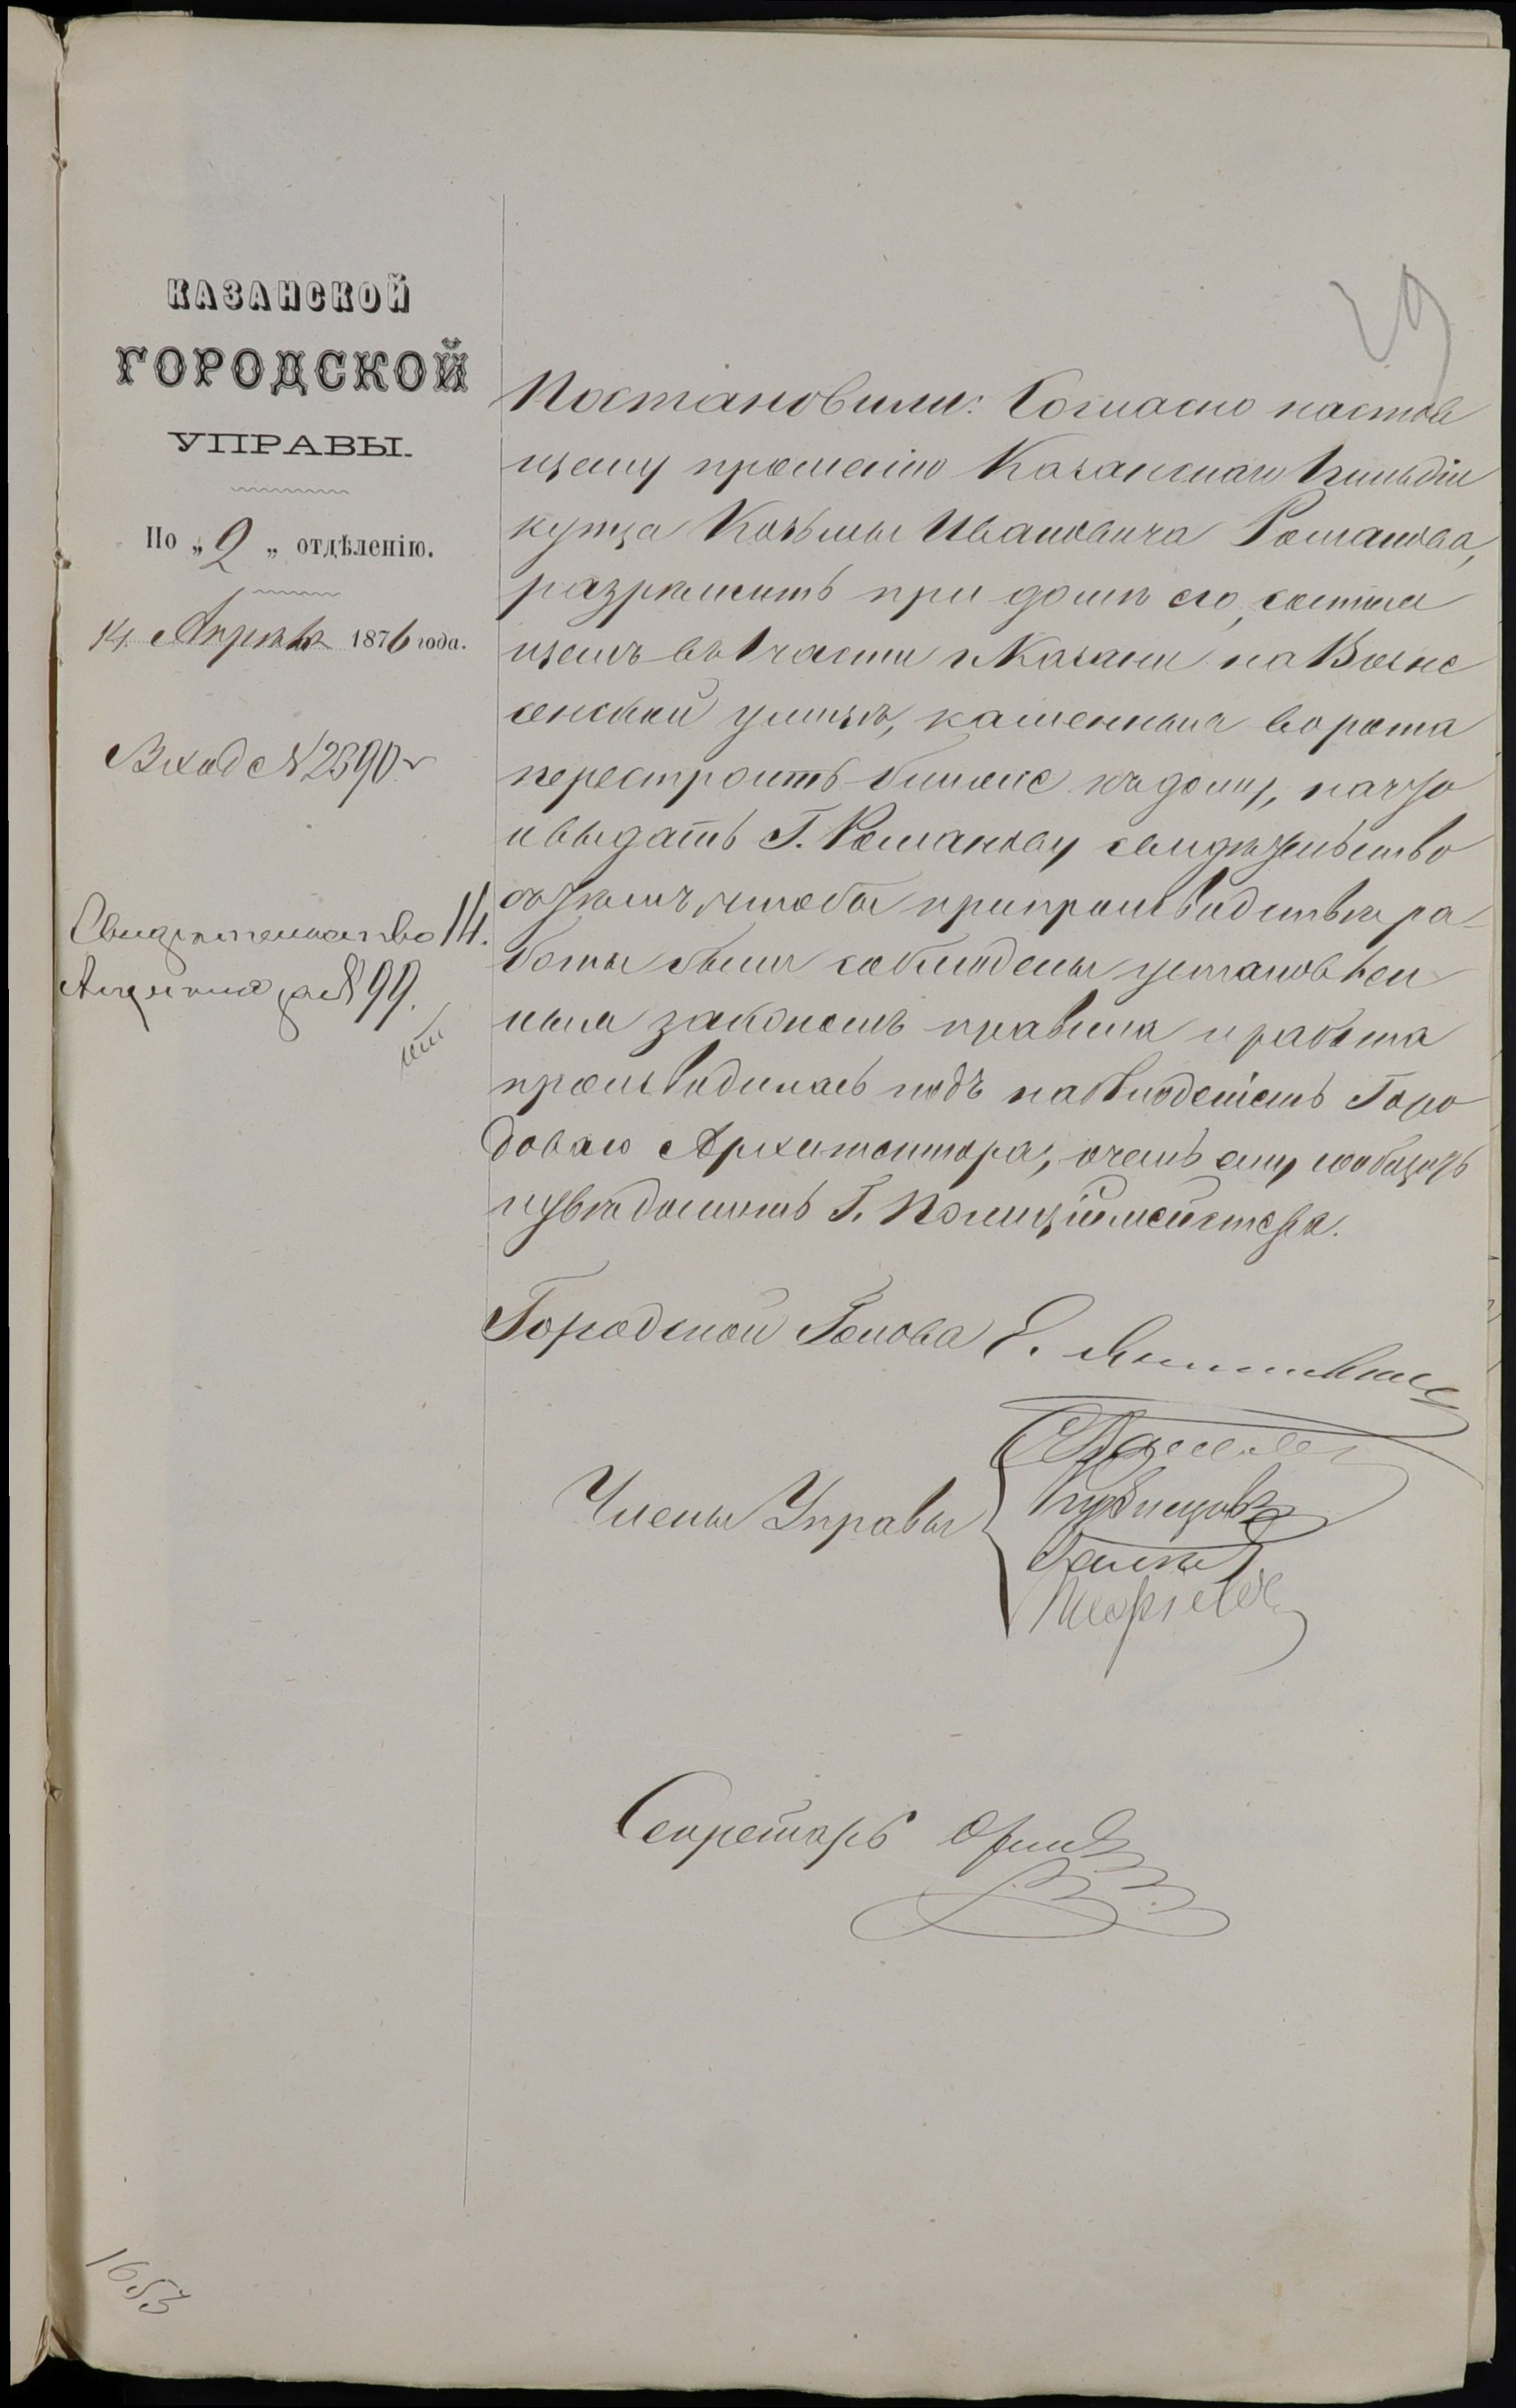 КАЗАНСКОЙ
ГОРОДСКОЙ
УПРАВЫ.
По „2„ отдѣленію.
14 Апрѣля 1876 года.
Вход №2390
Свидѣтельство 14.
Апрѣля за №99.
19
Постановили: Согласно настоя
щему прошенію Казанскаго 1 гильдіи
купца Козьмы Ивановича Романова,
разрѣшить при домѣ его, состоя
щемъ въ 1 части г. Казани на Возне
сенской улицѣ, каменныя ворота
перестроить ближе къ дому, на что
и выдать Г. Романову свидѣтельство
съ тѣмъ, чтобы при производствѣ ра-
боты были соблюдены установлен
ныя закономъ правила и работа
производилась подъ наблюденіемъ Горо
доваго Архитектора, о чемъ ему сообщить
и увѣдомить Г. Полиціймейстера.
Городской Голова Е.
Члены Управы
Кузнецовъ
Секретарь
1653